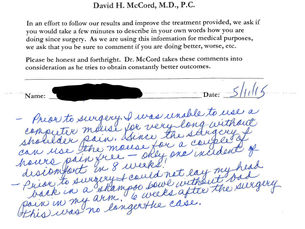 David H. McCord, M.D., P.C.
In an effort to follow our results and improve the treatment provided, we ask if
you would take a few minutes to describe in your own words how you are
doing since surgery. As we are using this information for medical purposes,
we ask that you be sure to comment if you are doing better, worse, etc.
Please be honest and forthright. Dr. McCord takes these comments into
consideration as he tries to obtain constantly better outcomes.
Name: Date: 5/11/15
- Prior to surgery I was unable to use a
computer mouse for very long without
shoulder pain. Since the surgery I
can use the mouse for a couple of
hours pain free - only one incident of
discomfort in 8 weeks!
- Prior to surgery I could not lay my head
back in a shampoo bowl without bad
pain in my arm. 6 weeks after the surgery
this was no longer the case.